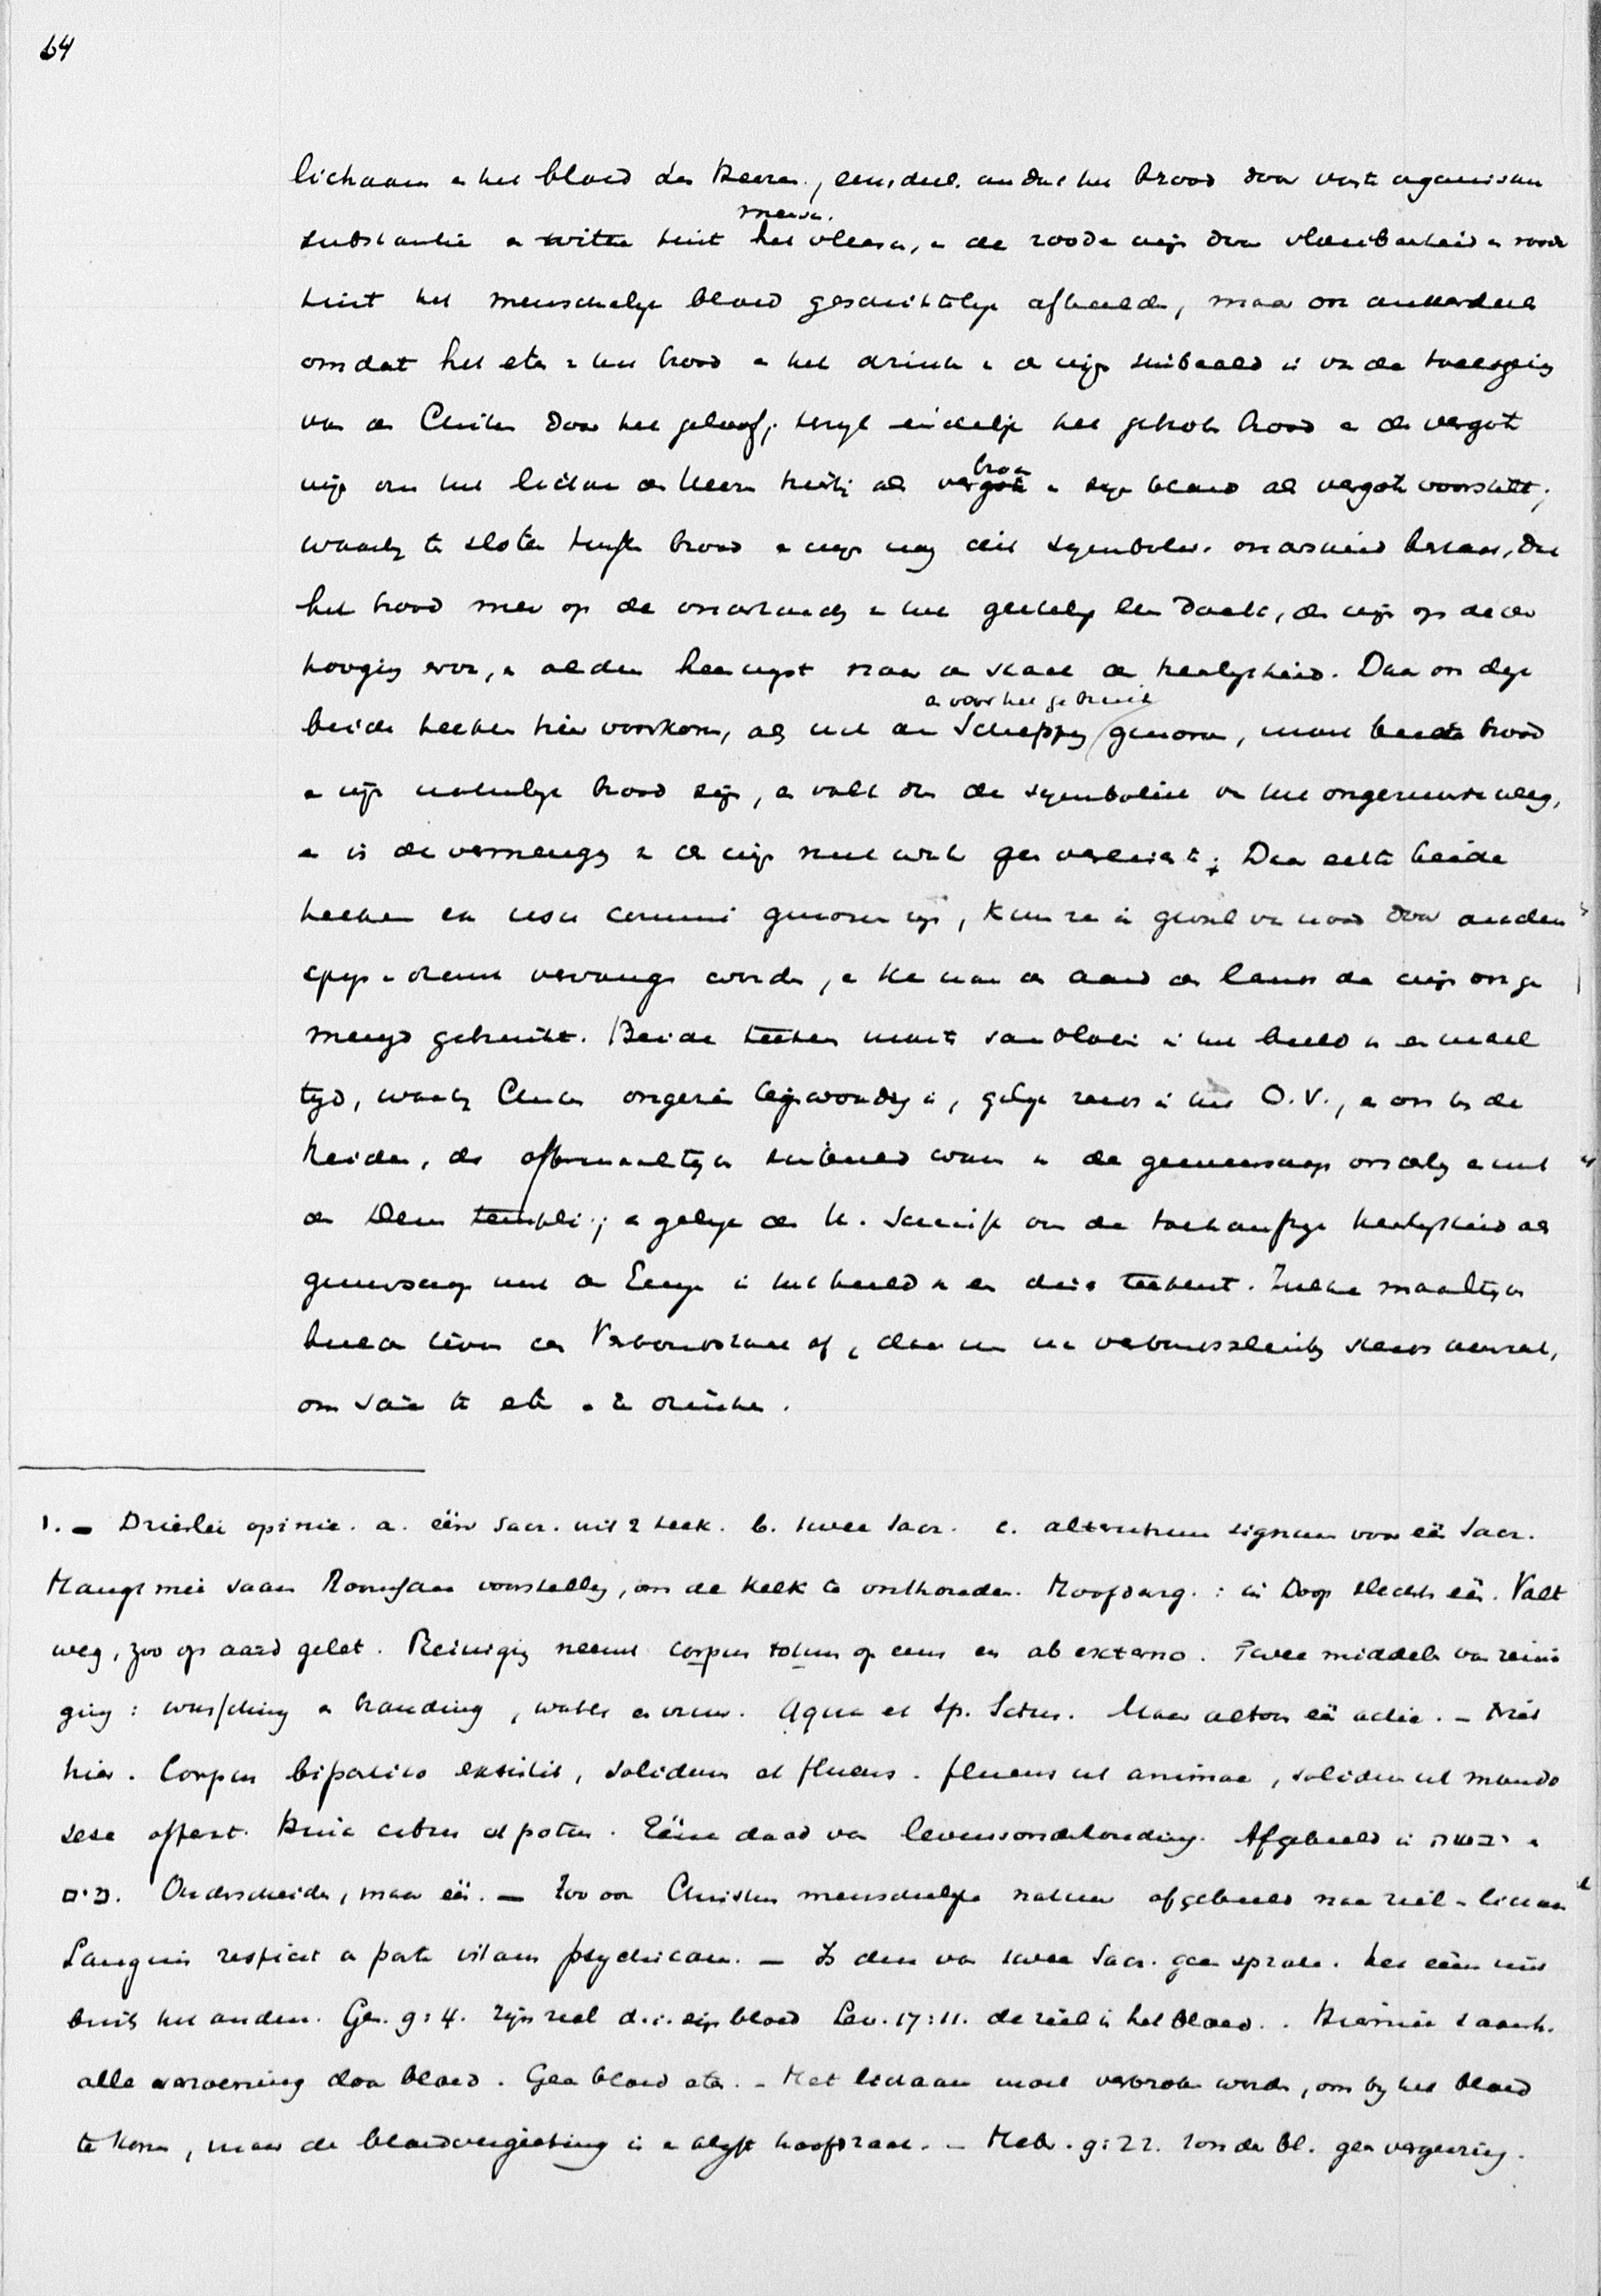 64
lichaam en het bloed des Heeren, eensdeels omdat het brood door vaste organische
mensch.
substantie en witte tint het vleesch, en de roode wijn door vloeibaarheid en roode
tint het menschelijk bloed gezichtelijk afbeelden, maar ook anderdeels
omdat het eten van het brood en het drinken van de wijn zinbeeld is van de toeëigening
van den Christus door het geloof; terwijl eindelijk het gebroken brood en de vergoten
wijn ons het lichaam des Heeren
brok
als vergoten en zijn bloed als vergoten voorstelt;
waarbij ten slotte tusschen brood en wijn nog dit symbolisch onderscheid bestaat, dat
het brood meer op de onderhouding van het geestelijk leven doelt, de wijn op de ver
hooging ervan, en alzoo heenwijst naar den staat der heerlijkheid. Daar nu deze
en voor het gebruik
beide teekenen hier voorkomen, als uit de Schepping genomen, moet beide brood
en wijn natuurlijk brood zijn, en valt dus de symboliek van het ongezuurde weg,
en is de vermenging van de wijn met water geen vereischte; Daar echter beide
teekenen ex usu communi genomen zijn, kunnen ze in geval van nood door andere
spijs en drank vervangen worden, en
mengd gebruikt. Beide teekenen moeten samenvloeien in het beeld van een maal
tijd, waarbij Christus ongezien tegenwoordig is, gelijk reeds in het O.V., en ook bij de
Heidenen, de offermaaltijden zinbeeld waren van de gemeenschap onderling en met
den Deus templi; en gelijk de H. Schrift ons de toekomstige heerlijkheid als
gemeenschap met den Eenige in het beeld van een disch teekent. Zulke maaltijden
beelden tevens de Verbondszaak af, daar men bij verbondssluiting steeds aanzat,
om saâm te eten en te drinken.
1. – Drieërlei opinie. a. één Sacr. uit 2 teek. b. twee Sacr. c. alterutrum signum voor één Sacr.
Hangt mee saam Roomsche voorstelling, om de kelk te onthouden. Hoofdarg.: in Doop slechts één. Valt
weg, zoo op aard gelet. Reiniging neemt corpus totum op eens en ab externo. Twee middelen van reini
ging: wassching en branding, water en vuur. Aqua et Sp. Sctus. Maar altoos één actie. – Niet
hier. Corpus bipartito existit, solidum et fluens. fluens ut animae, solidum ut mundo
sese offert. Huic cibus et potus. Eéne daad van levensonderhouding. Afgebeeld in בשר en
דם. Onderscheiden, maar één. – Zoo ook Christus menschelijke natuur afgebeeld naar ziel en lichaam
Sanguis respicit a parte vitam psychicam. – Is dus van twee Sacr. geen sprake. Het eene niet
buiten het andere. Gen. 9:4. zijn ziel d.i. zijn bloed Lev. 17:11. de ziel is het bloed. Hiermee saamh.
alle verzoening door bloed. Geen bloed eten. – Het lichaam moet verbroken worden, om bij het bloed
te komen, maar de bloedvergieting is en blijft hoofdzaak. – Hebr. 9:22. zonder bl. geen vergeving.